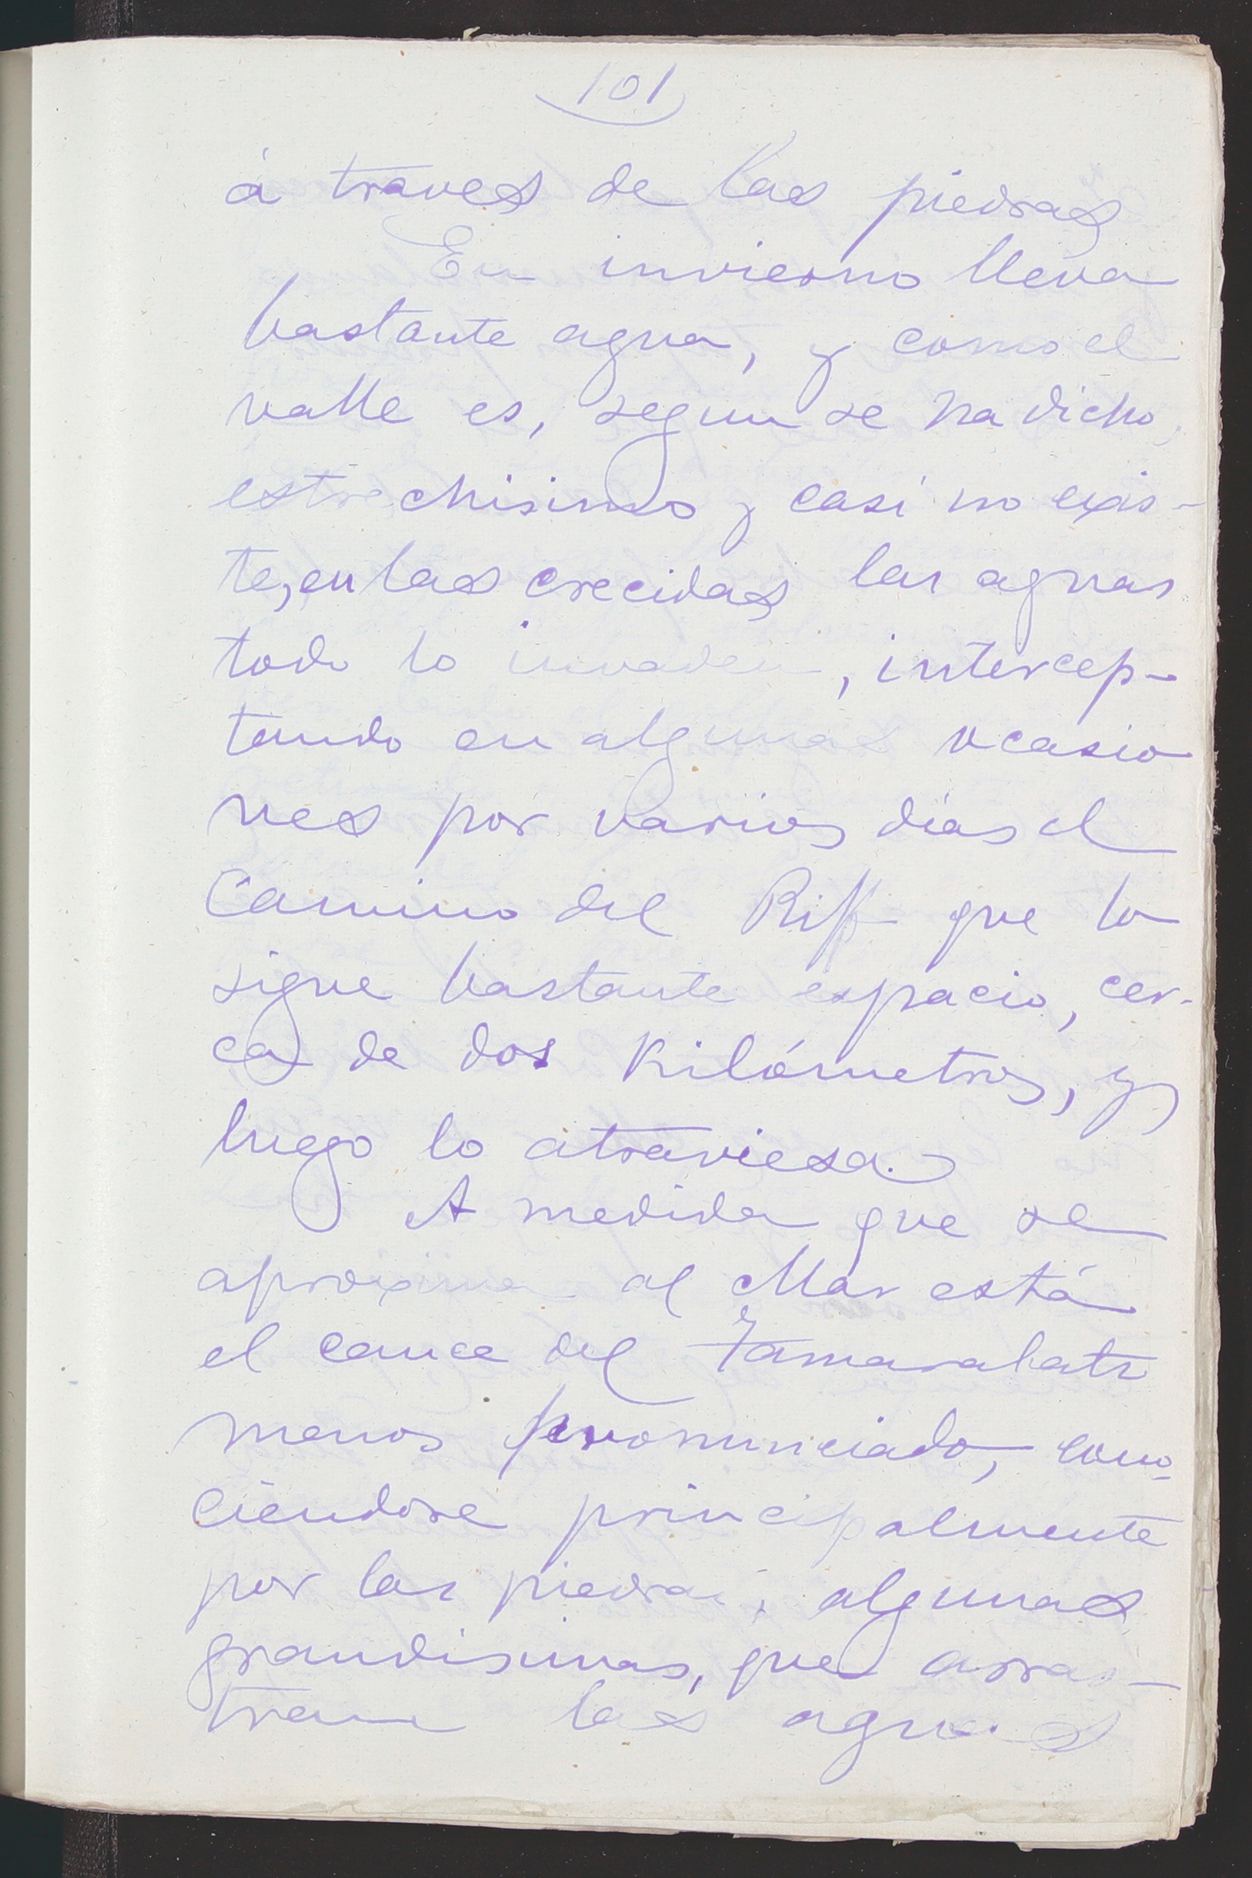 101
á traves de las piedras
En invierno lleva
bastante agua, y como el
valle es, segun se ha dicho,
estrechisimo y casi no exis-
te, en las crecidas las aguas
todo lo invaden, intercep-
tando en algunas ocasio
nes por varios días el
camino del Riff que lo
sigue bastante espacio, cer-
ca de dos Kilómetros, y
luego lo atraviesa.
A medida que se
aproxima al Mar está
el cauce del Tamarabatz
menos pronunciado, cono-
ciendose principalmente
por las piedras, algunas
grandisimas, que arras-
tran las aguas